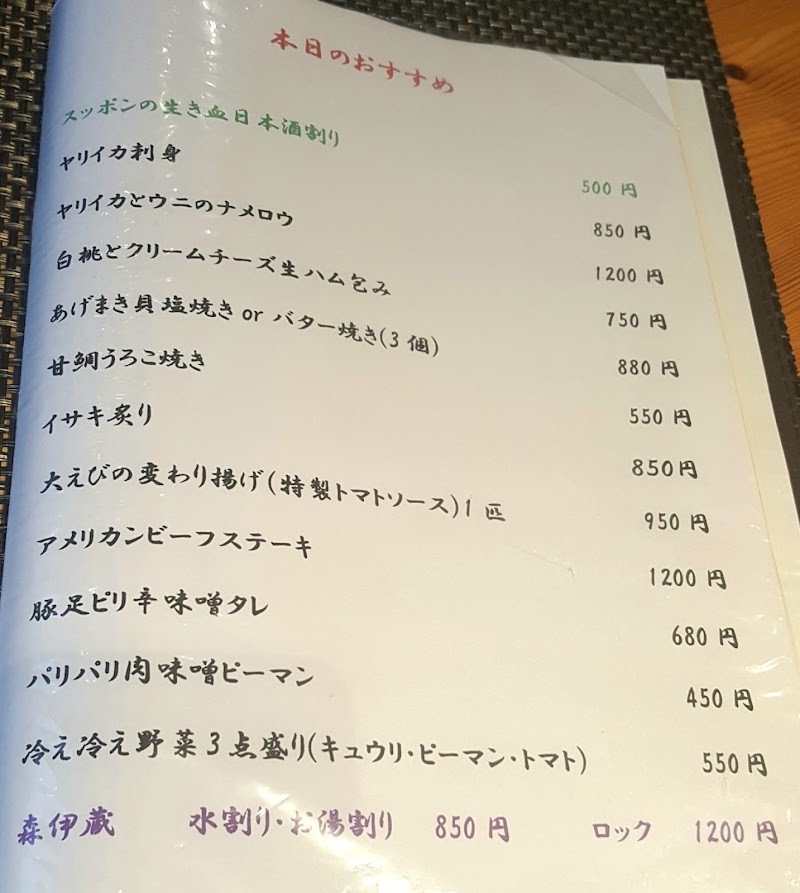 本日のおすすめ
スッポンの生き血日本酒割り 500円
ヤリイカ刺身 850円
ヤリイカとウニのナメロウ 1200円
白桃とクリームチーズ生ハム包み 750円
あげまき貝塩焼き or バター焼き(3個) 880円
甘鯛うろこ焼き 550円
イサキ炙り 850円
大えびの変わり揚げ(特製トマトソース)1匹 950円
アメリカンビーフステーキ 1200円
豚足ピリ辛味噌タレ 680円
パリパリ肉味噌ピーマン 450円
冷え冷え野菜3点盛り(キュウリ・ピーマン・トマト) 550円
森伊蔵 水割り・お湯割り 850円 ロック 1200円